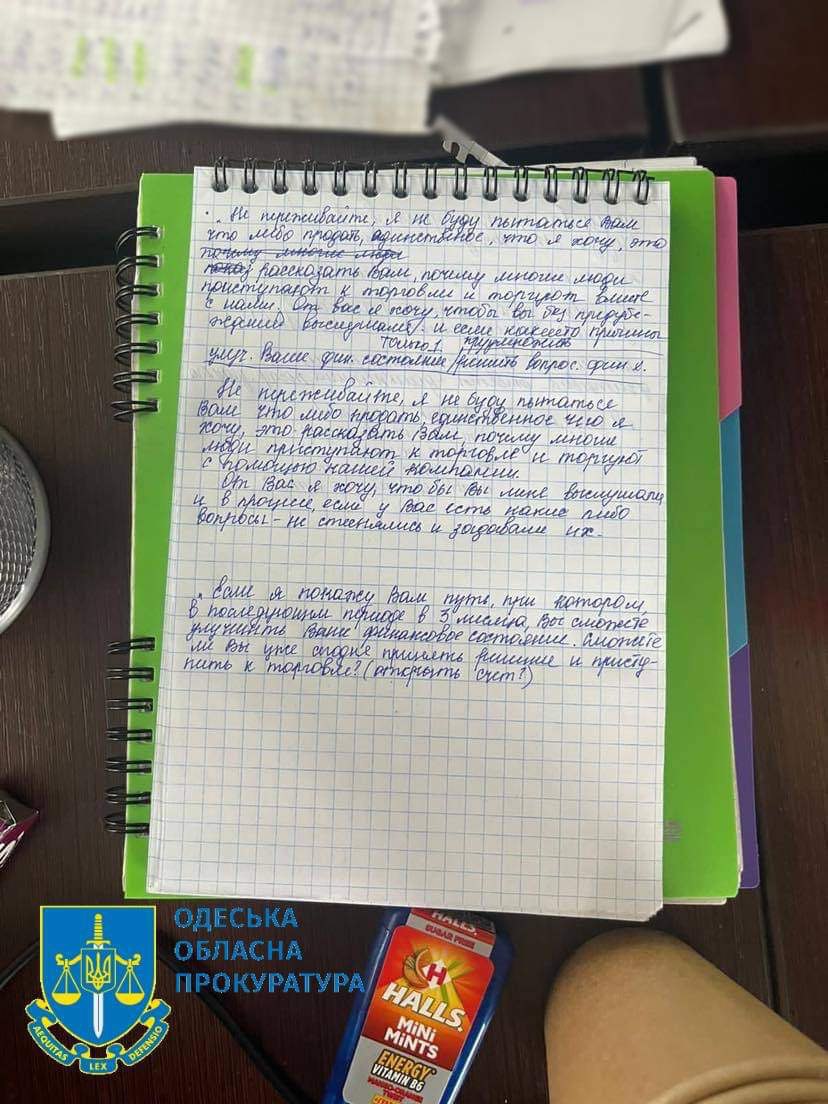 . Не переживайте, я не буду пытаться Вам
что либо продать, единственое, что я хочу, это
почему многие люди
рассказать Вам, почему многие люди
приступают к торговли и торгуют вместе
с нами. От вас я хочу, чтобы вы без предубе-
ждений выслушали и если
только 1
улуч. Ваше фин. состояние/решить вопрос. фин.
Не переживайте, я не буду пытаться
Вам что либо продать, единственное что я
хочу, это рассказать Вам, почему многие
люди приступают к торговле и торгуют
с помощью нашей компании.
От Вас я хочу, что бы Вы мне выслушали
и в процессе, если у Вас есть какие либо
вопросы - не стеснялись и задавали их.
. Если я покажу Вам путь, при котором,
в последующем периоде в 3 месяца, Вы сможете
улучшить Ваше финансовое состояние. Сможете
ли Вы уже сегодня принять решение и присту-
пить к торговле? (открыть счет?)
ОДЕСЬКА
ОБЛАСНА
ПРОКУРАТУРА
AEQUITAS LEX DEFENSIO
HALLS
SUGAR FREE
H
HALLS
MiNi
MiNTS
ENERGY
VITAMIN B6